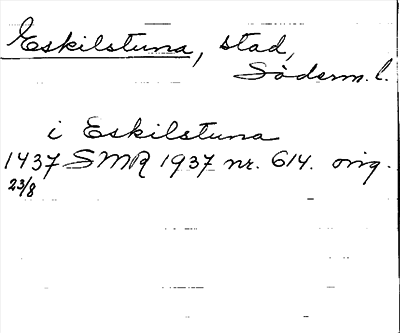 Eskilstuna, stad,
Söderm. l.
i Eskilstuna
1437 SMR 1937 nr. 614. orig.
23/8